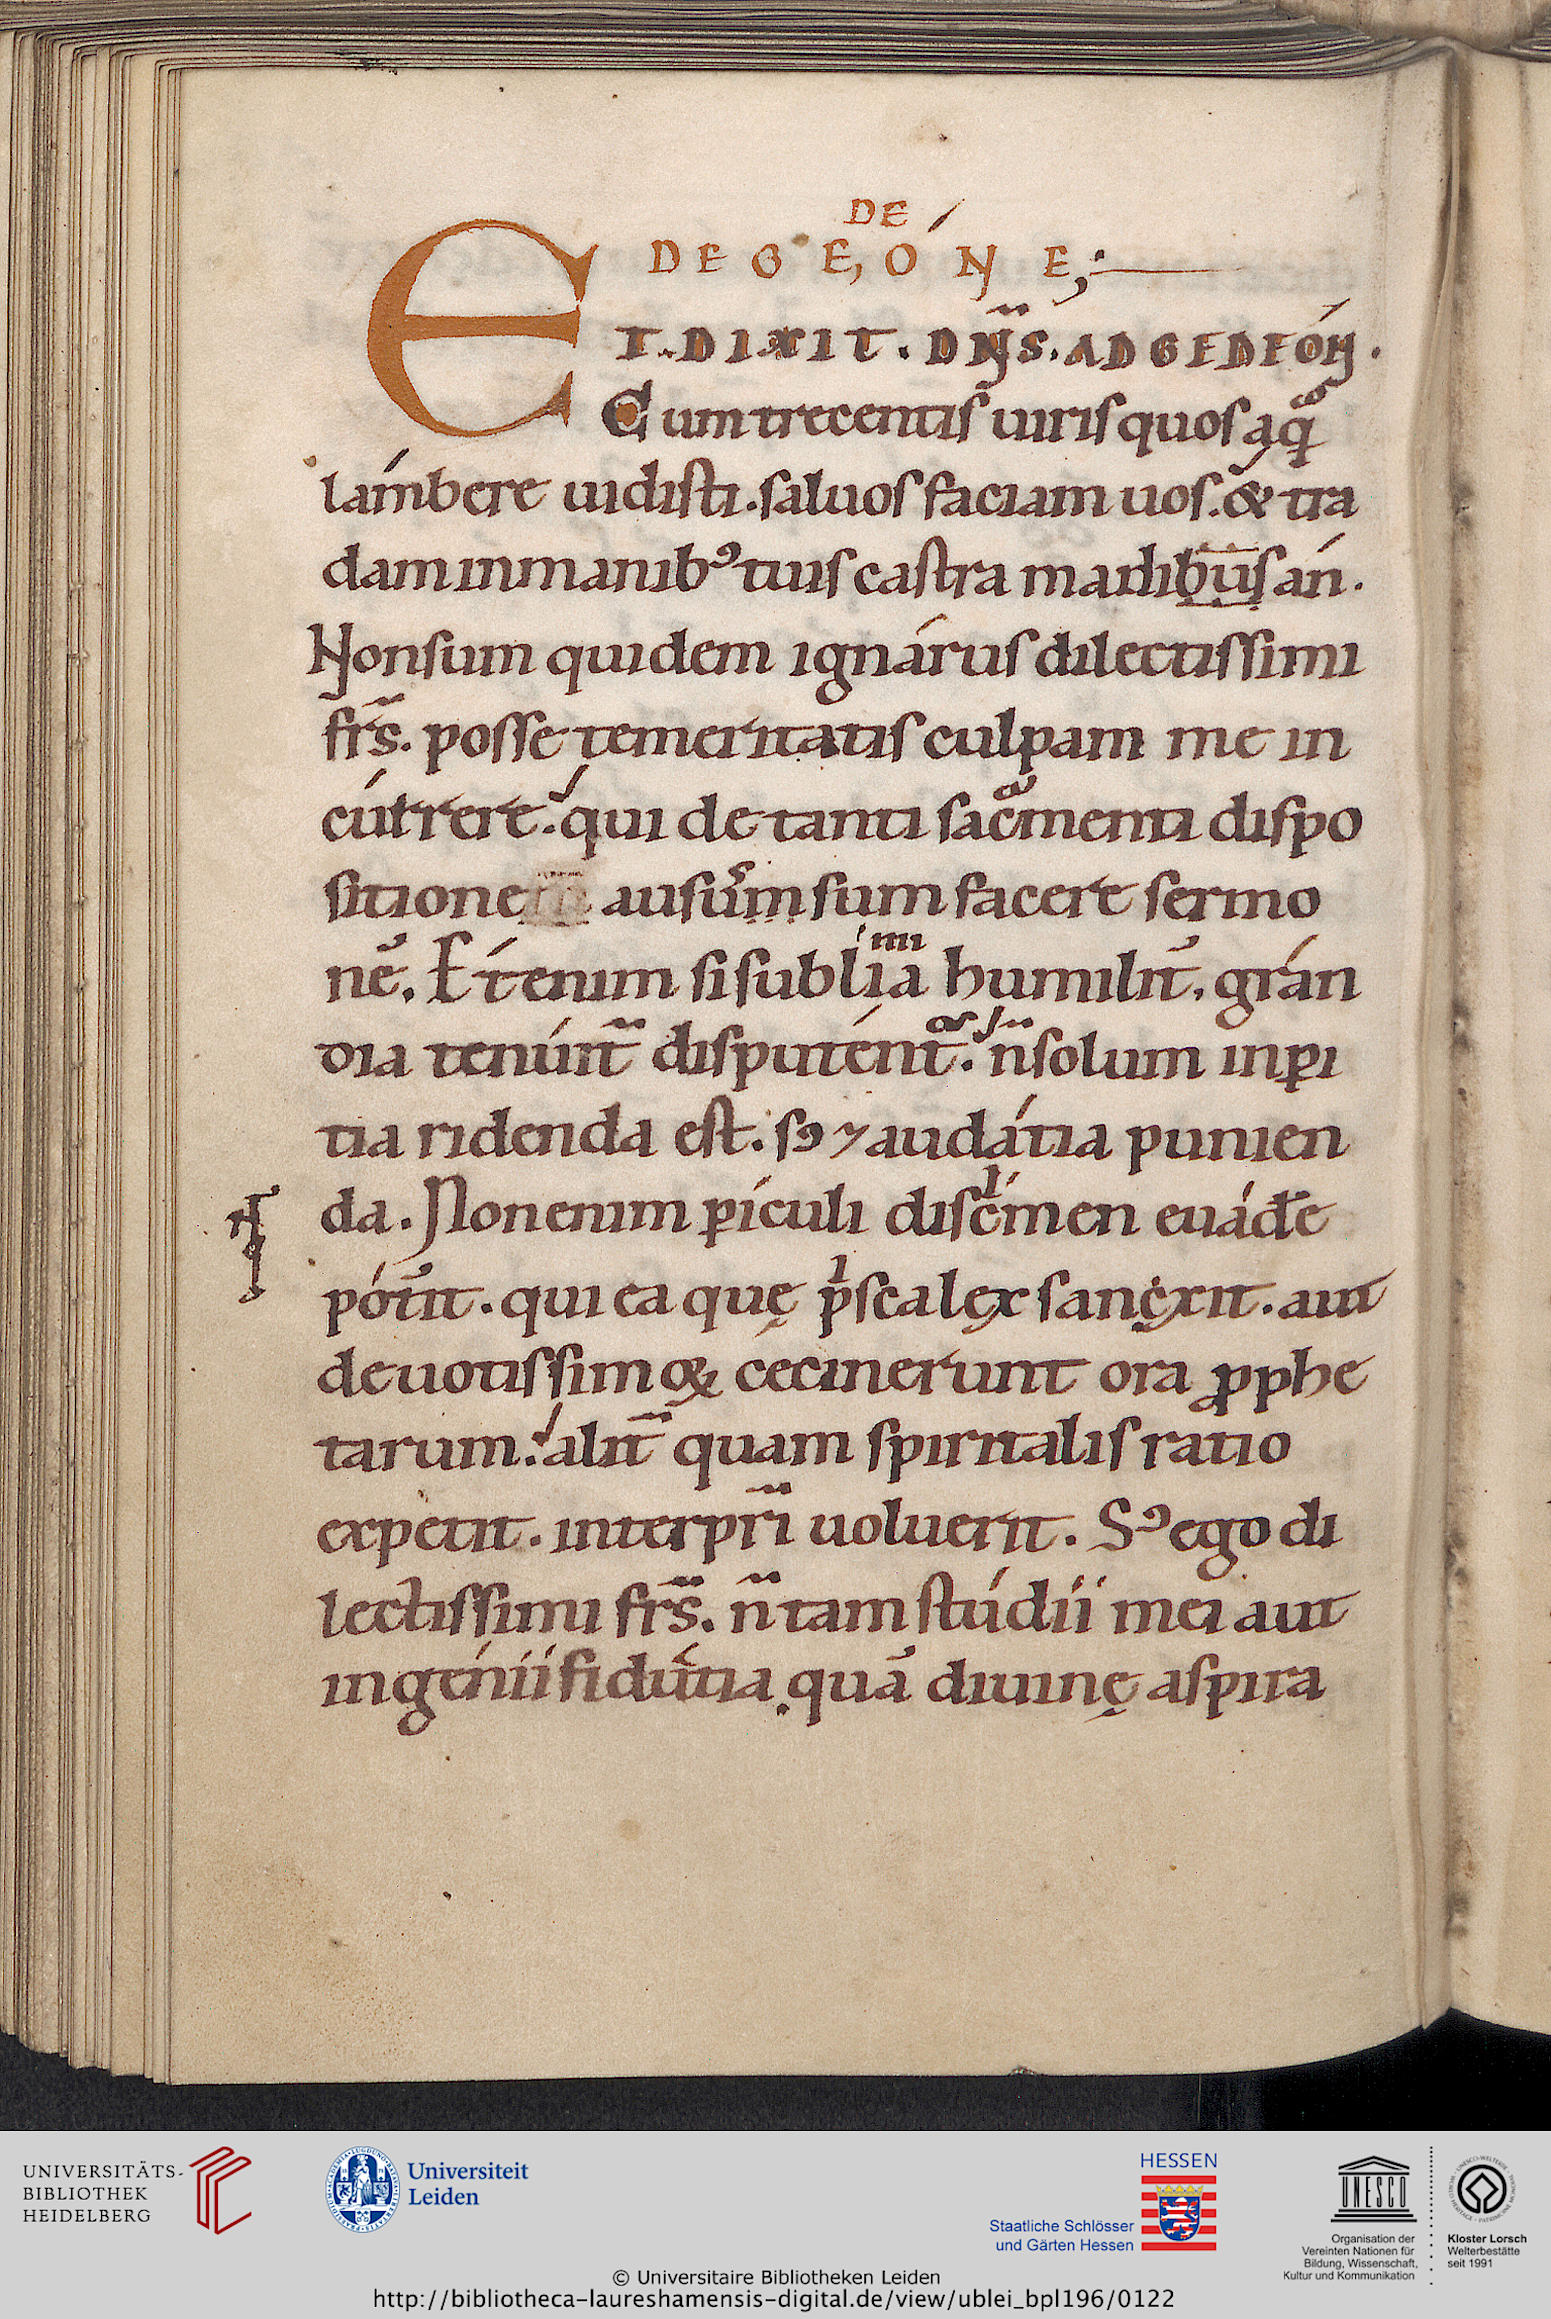 DE
DE GE,ONE;
ET. DIXIT. DN̄S. AD GEDEÓN.
Cum trecentis uiris quos aq̊
lámbere uidisti. saluos faciam uos. & tra
dam inmanibꝰ tuis castra madibus án.
Non sum quidem ignárus dilectissimi
fr̄s. posse temeritatis culpam me in
cúrrere. qui de tanti sac̃menti dispo
sitione ausum sum facere sermo
nē. Et enim si sublia humilit̄, grán
mi
dia tenúit̄ disputént̄. n̄ solum inꝑi
tia ridenda est. sꝫ ⁊ audátia punien
da. Non enim ꝑículi discͥmen euád̄e
pót̄it. qui ea quę pͥsca lex sancxit. aut
deuotissimoꝝ cecinerunt ora ꝓphe
tarum. alit̄ quam spiritalis ratio
expetit. interpr̄i uoluerit. Sꝫ ego di
lectissimi fr̄s. n̄ tam stúdíí mei aut
ingéníí fidutia quā diuinę aspira
UNIVERSITÄTS-
BIBLIOTHEK
HEIDELBERG
Universiteit
Leiden
HESSEN
Staatliche Schlösser
und Gärten Hessen
UNESCO
Organisation der
Vereinten Nationen für
Bildung, Wissenschaft,
Kultur und Kommunikation
Kloster Lorsch
Welterbestätte
seit 1991
© Universitaire Bibliotheken Leiden
http://bibliotheca-laureshamensis-digital.de/view/ublei_bpl196/0122